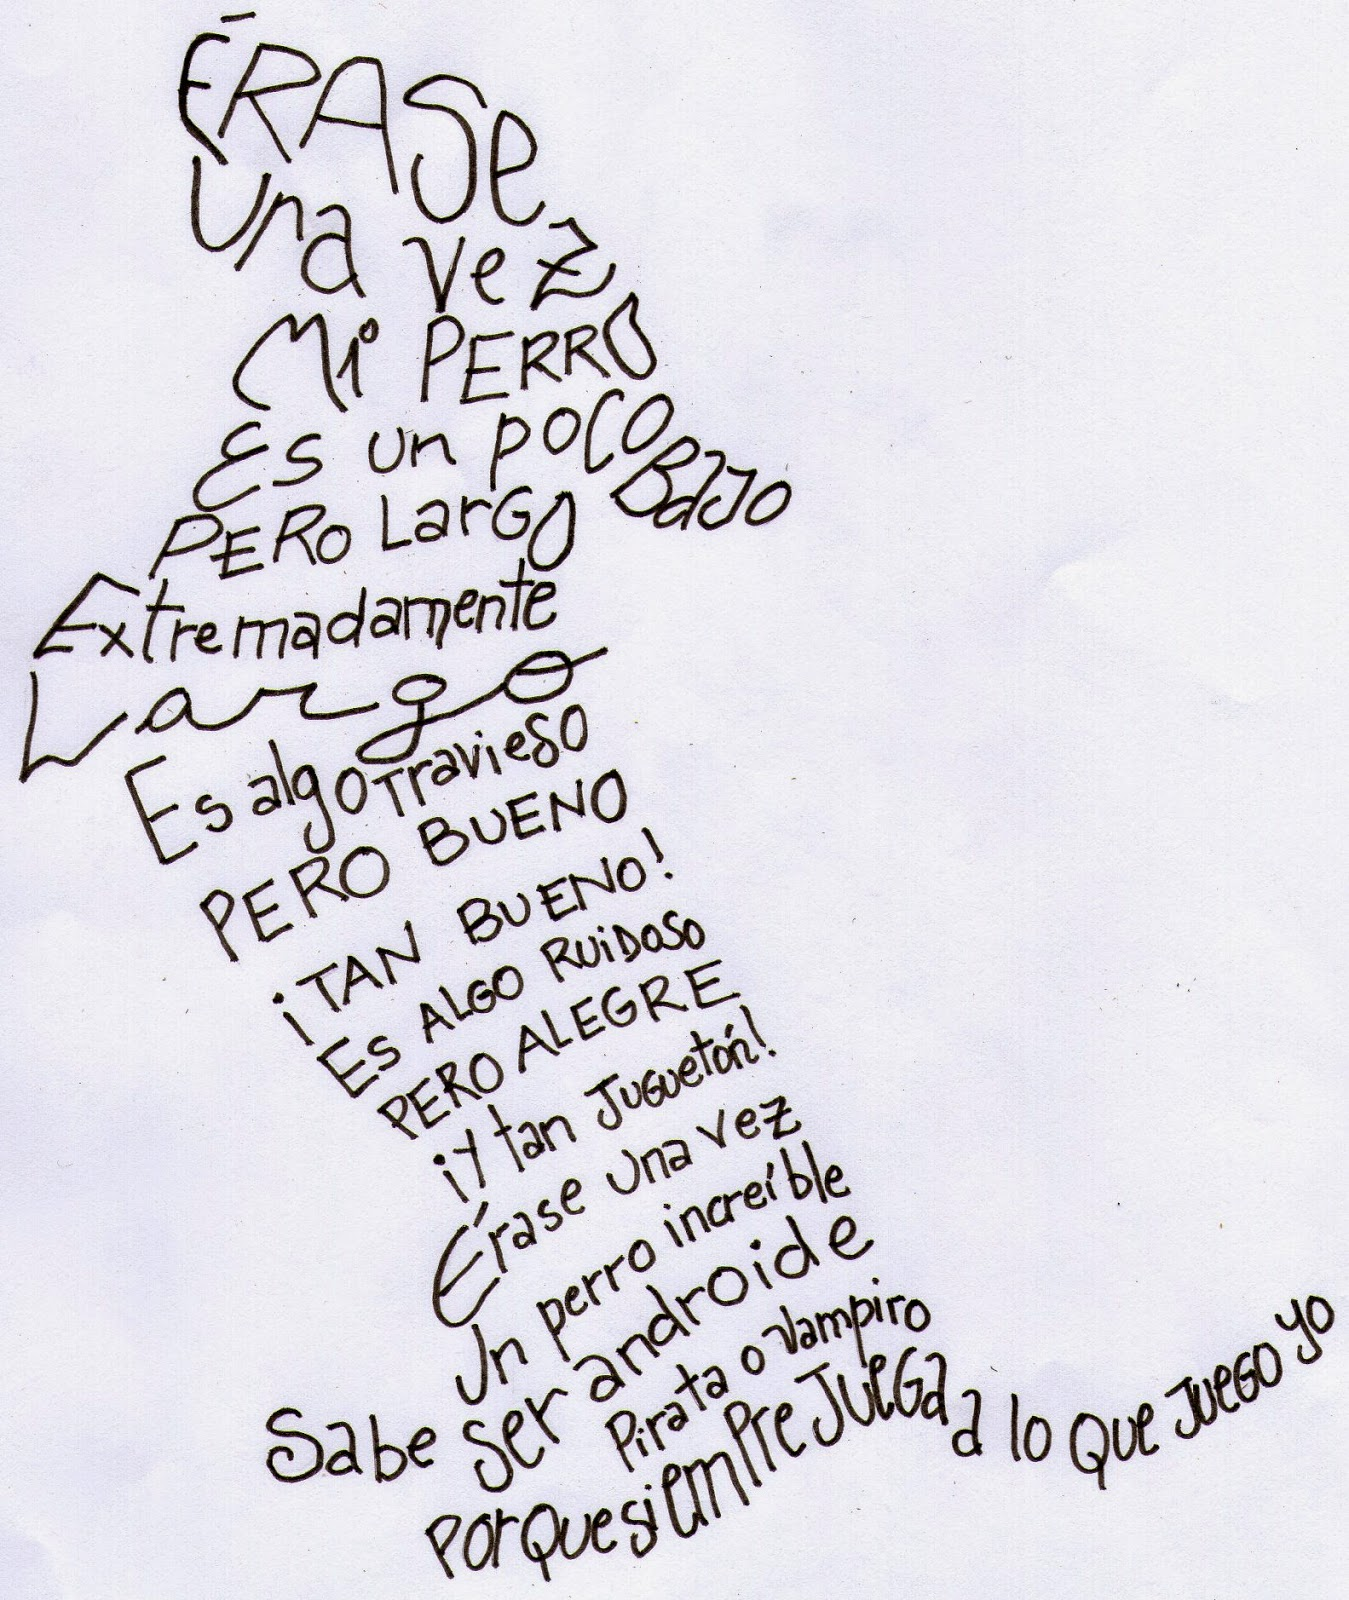 ÉRASe
Una vez
Mi PERRO
Es un poco BaJo
PERO LarGO
Extremadamente
Largo
Es algo Travieso
PERO BUENO
¡TAN BUENO!
Es ALGO RUiDOSO
PERO ALEGRE
¡Y tan JUGUetón!
Érase una vez
Un perro increíble
Sabe ser androide
Pirata o Vampiro
PorQue siEmPre JUeGa a lo Que JUEGO yo